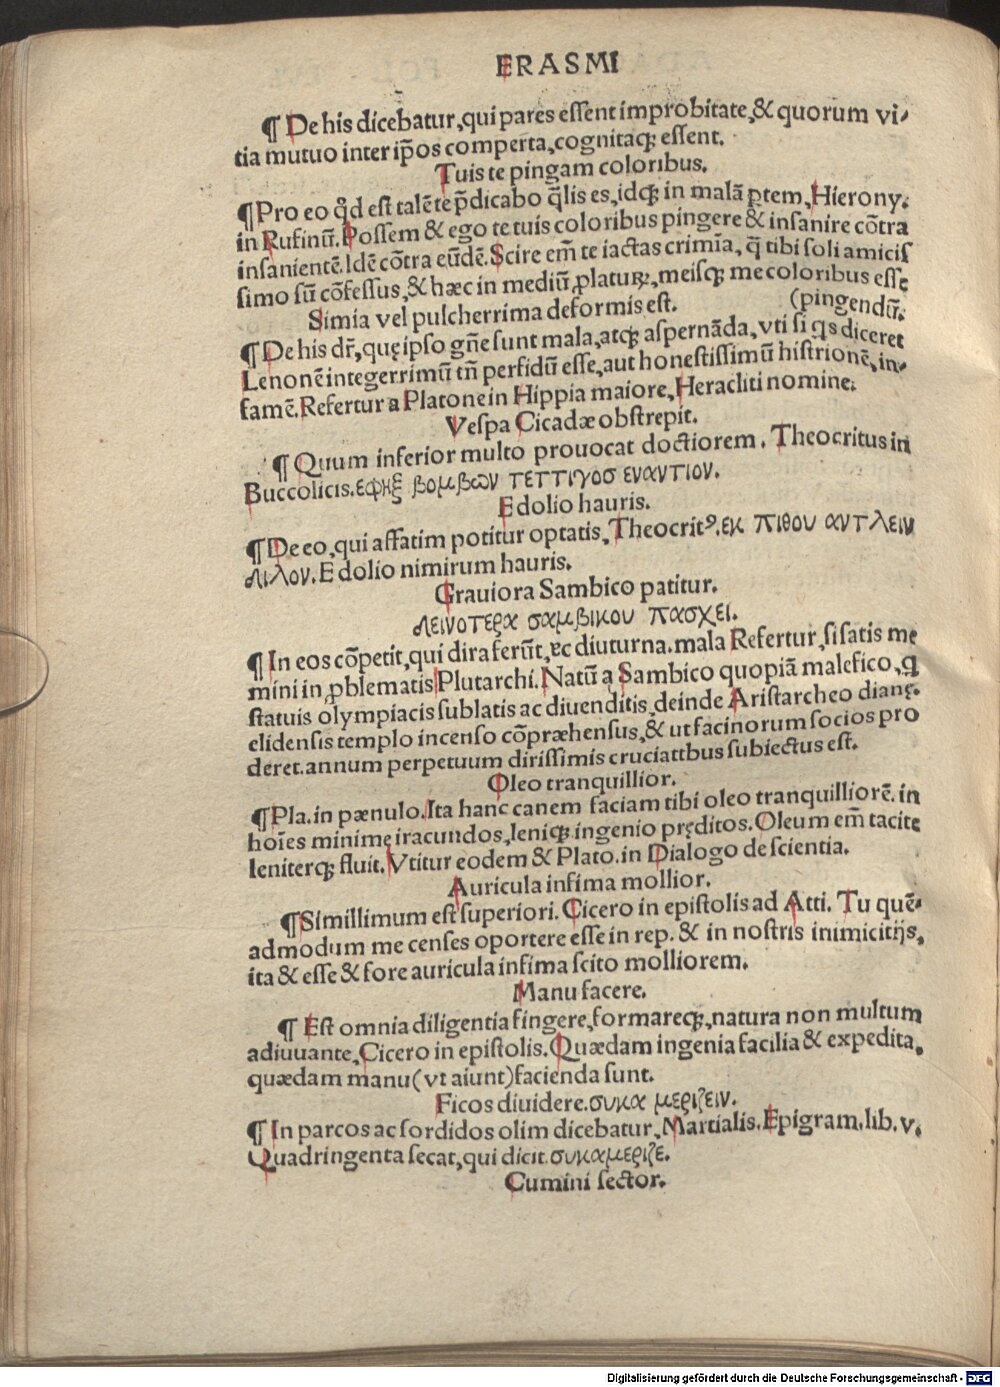 ERASMI
¶ De his dicebatur, qui pares essent improbitate, & quorum vi-
tia mutuo inter ip̄os comperta, cognitaq; essent.
Tuis te pingam coloribus.
¶ Pro eo q̄d est talē te p̄dicabo q̄lis es, idq; in malā ꝑtem, Hierony.
in Rufinū. Possem & ego te tuis coloribus pingere & insanire cōtra
insanientē. Idē cōtra eūdē. Scire em̄ te iactas crimīa, q̄ tibi soli amicis
simo sū cōfessus, & hæc in mediū ꝓlaturꝝ, meisq; me coloribus esse
Simia vel pulcherrima deformis est. (pingendū.
¶ De his dr̄, quę ipso gn̄e sunt mala, atq; aspernāda, vti si q̇s diceret
Lenonē integerrimū tn̄ perfidū esse, aut honestissimū histrionē, in-
famē. Refertur a Platone in Hippia maiore, Heracliti nomine.
Vespa Cicadæ obstrepit.
¶ Quum inferior multo prouocat doctiorem. Theocritus in
Buccolicis. εφηξ βομβων τεττιγοσ εναντιον.
E dolio hauris.
¶ De eo, qui affatim potitur optatis, Theocritꝰ. εκ πιθου αντλειν
λιλον. E dolio nimirum hauris.
Grauiora Sambico patitur.
λεινοτερα σαμβικου πασχει.
¶ In eos cōpetit, qui dira ferūt, ec diuturna. mala Refertur, si satis me
mini in ꝓblematis Plutarchi. Natū a Sambico quopiā malefico, q
statuis olympiacis sublatis ac diuenditis, deinde Aristarcheo dianę.
elidensis templo incenso cōpræhensus, & ut facinorum socios pro
deret. annum perpetuum dirissimis cruciattbus subiectus est.
Oleo tranquillior.
¶ Pla. in pænulo. Ita hanc canem faciam tibi oleo tranquilliorē. in
hoīes minime iracundos, leniq; ingenio pręditos. Oleum em̄ tacite
leniterq; fluit. Vtitur eodem & Plato. in Dialogo de scientia.
Auricula infima mollior.
¶ Simillimum est superiori. Cicero in epistolis ad Atti. Tu quē-
admodum me censes oportere esse in rep. & in nostris inimicitijs,
ita & esse & fore auricula infima scito molliorem.
Manu facere.
¶ Est omnia diligentia fingere, formareq;, natura non multum
adiuuante, Cicero in epistolis. Quædam ingenia facilia & expedita,
quædam manu (vt aiunt) facienda sunt.
Ficos diuidere. συκα μεριζειν.
¶ In parcos ac sordidos olim dicebatur, Martialis. Epigram. lib. v.
Quadringenta secat, qui dicit. συκαμεριζε.
Cumini sector.
Digitalisierung gefördert durch die Deutsche Forschungsgemeinschaft - DFG